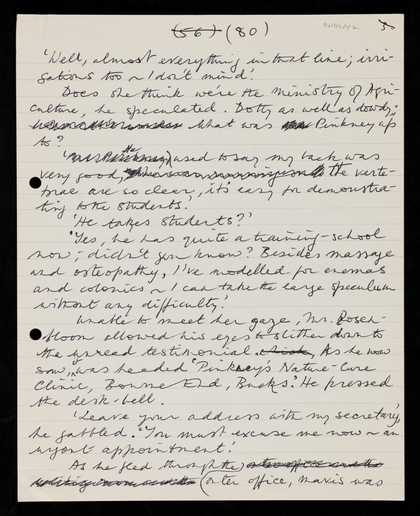 (56) (80)
5
'Well, almost everything in that line; irri-
gations too ~ I don't mind.'
Does she think we're the Ministry of Agri-
culture, he speculated. Dotty as well as dowdy;
what was Pinkney up
to?
'He used to say my back was
very good, the verte-
brae are so clear, it's easy for demonstra-
ting to the students.'
'He takes students?'
'Yes, he has quite a training-school
now; didn't you know? Besides massage
and osteopathy, I've modelled for enemas
and colonics ~ I can take the large speculum
without any difficulty.'
Unable to meet her gaze, Mr. Rosen-
bloom allowed his eyes to slither down to
the spread testimonial. As he now
saw, was headed 'Pinkney's Nature-Cure
Clinic, Bourne End, Bucks.' He pressed
the desk-bell.
'Leave your address with my secretary,'
he gabbled. 'You must excuse me now ~ an
urgent appointment.'
As he fled through the outer office and the
waiting-room outer office, Mavis was